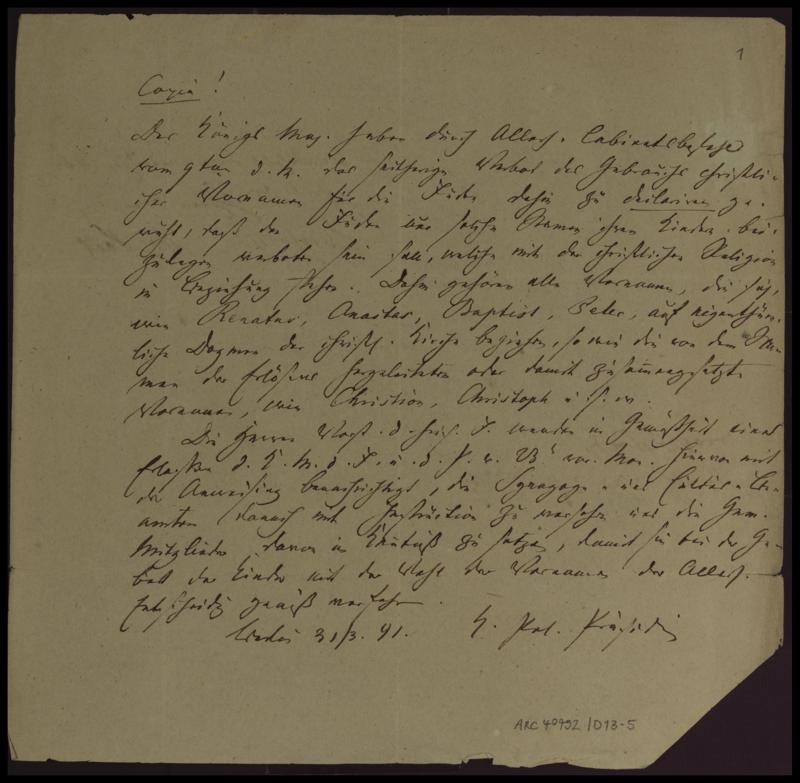 1
Copia!
Des Königs Maj. haben durch Allerh. Cabinetsbefehl
vom 9ten d. M. das seitherige Verbot des Gebrauchs christli-
cher Vornamen für die Juden dahin zu declariren ge-
ruht, daß den Juden nur solche Namen ihren Kindern bei-
zulegen verboten sein soll, welche mit der christlichen Religion
in Beziehung stehen. Dahin gehören alle Vornamen, die sich,
wie Renatus, Anastas, Baptist, Peter, auf eigenthüm-
liche Dogmen der christl. Kirche beziehen, so wie die von dem Na-
men des Erlösers hergeleiteten oder damit zusammengesetzte
Vornamen, wie Christian, Christoph u. s. w.
Die Herren Vorst. d. hies. J. werden in Gemäßheit eines
Erlasses d. K. M. d. J. u. d. P. v. vor. Mon. hiervon mit
der Anweisung benachrichtigt, die Synagoge- und Cultus-Be-
amten danach mit Instruction zu versehen und die Gem.
Mitglieder davon in Kentniß zu setzen, damit sie bei der Ge-
burt der Kinder mit der Wahl der Vornamen der Allerh.
Entscheidg gemäß verfahren.
31/3. 41. K. Pol. Präsidium
ARC 40992/D13-5